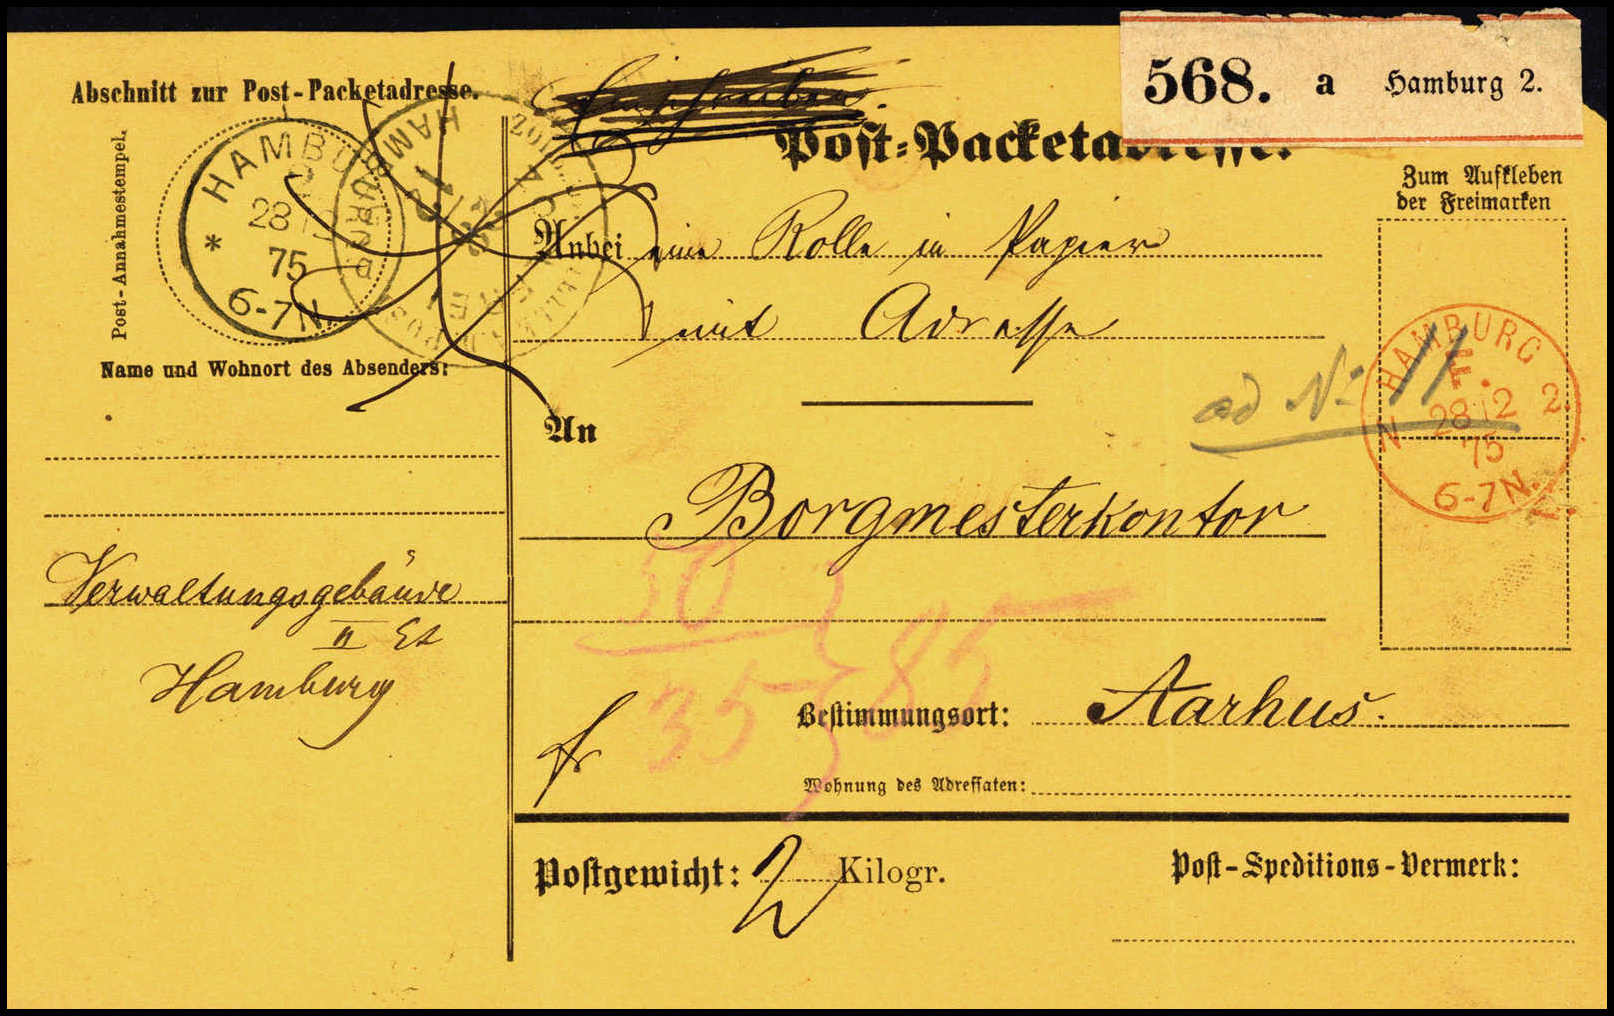 568. a Hamburg 2.
Abschnitt zur Post-Packetadresse.
Einschreiben.
Post-Packetadresse.
Post-Annahmestempel.
* HAMBURG
28 12
75
6-7N.
HAMBURG
Zum Aufkleben
der Freimarken
Anbei eine Rolle in Papier
mit Adresse
Name und Wohnort des Absenders:
ad No 11
HAMBURG
F.
N 28 12 2.
75
6-7N.
An
Borgmesterkontor
50
35 } 85
Verwaltungsgebäude
II Et
Hamburg
fr
Bestimmungsort: Aarhus.
Wohnung des Adressaten:
Postgewicht: 2 Kilogr.
Post-Speditions-Vermerk: